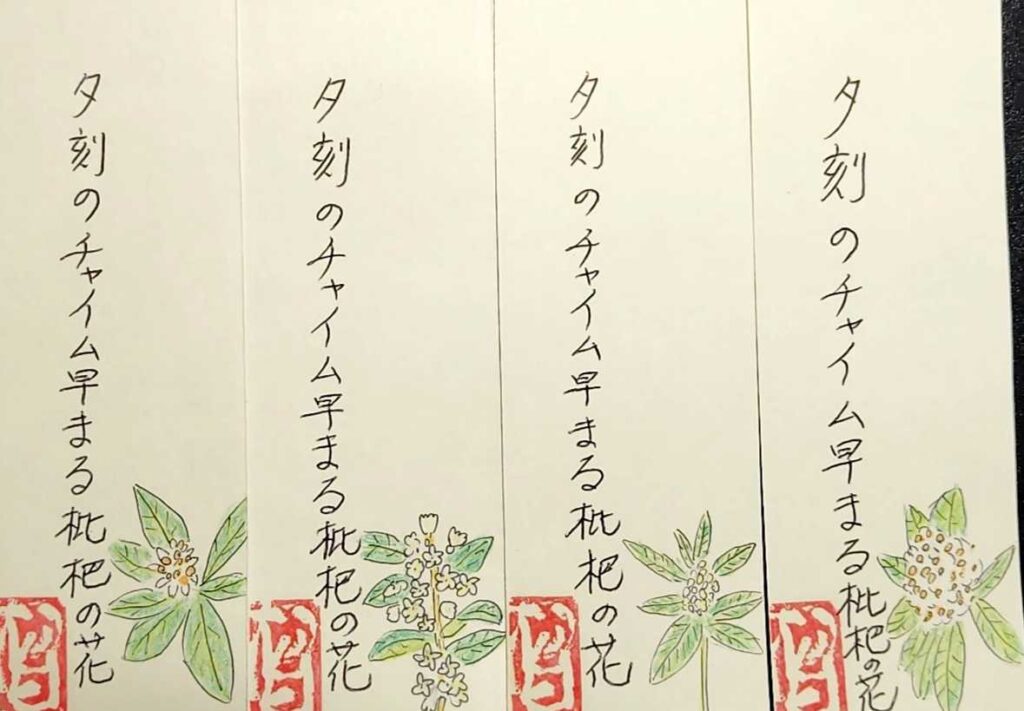 夕刻のチャイム早まる枇杷の花
夕刻のチャイム早まる枇杷の花
夕刻のチャイム早まる枇杷の花
夕刻のチャイム早まる枇杷の花